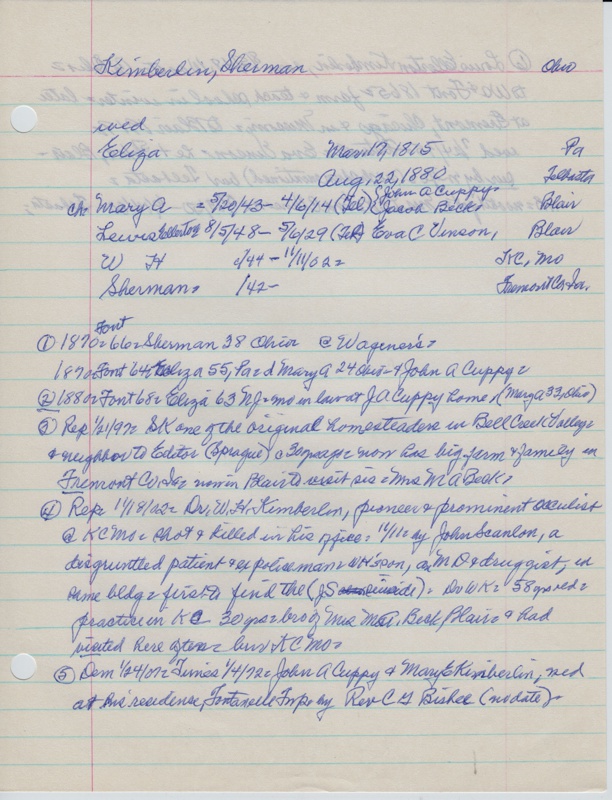 Kimberlin, Sherman Ohio
wed
Eliza Mar 17, 1815 Pa
Aug. 22, 1880 Telbasta
ch. Mary A = 5/20/43 - 4/6/14 (Tel) (John A Cuppy = (Jacob Beck = Blair
Lewis Ellerton = 8/5/48 - 5/6/29 (Tel) Eva C Vinson, Blair
W H /44 - 11/11/02 = KC, Mo
Sherman = /42 - Fremont Co. Ia.
① 1870 = Font 66 = Sherman 28 Ohio @ Wagener's =
1870 Font '64 = Eliza 55, Pa = d Mary A 24 Ohio = & John A Cuppy =
② 1880 = Font '68 = Eliza 63 NJ = mo in law at JA Cuppy home, (Mary a 33, Ohio)
③ Rep 1/21/97 = SK one of the original homesteaders in Bell Creek Valley
& neighbor to Editor (Sprague) = 30 yrs ago = now has big farm & family in
Fremont Co. Ia = now in Blair to visit sis = Mrs M A Beck =
④ Rep = 11/18/02 = Dr. W. H. Kimberlin, pioneer & prominent occulist
@ KC Mo = shot & killed in his office = 11/11 = by John Scanlon, a
disgruntled patient & ex policeman = WH's son, a MD & druggist, in
same bldg = first to find the (JS suicide) = Dr WK = 58 yrs =
practice in KC 30 yrs = bro of Mrs M A. Beck, Blair = & had
visited here often = bur KC Mo =
⑤ Dem 1/24/07 = Times 1/4/72 = John A Cuppy & Mary E Kimberlin, wed
at his residence, Fontanelle Twp = by Rev C G Bisbee (no date) =